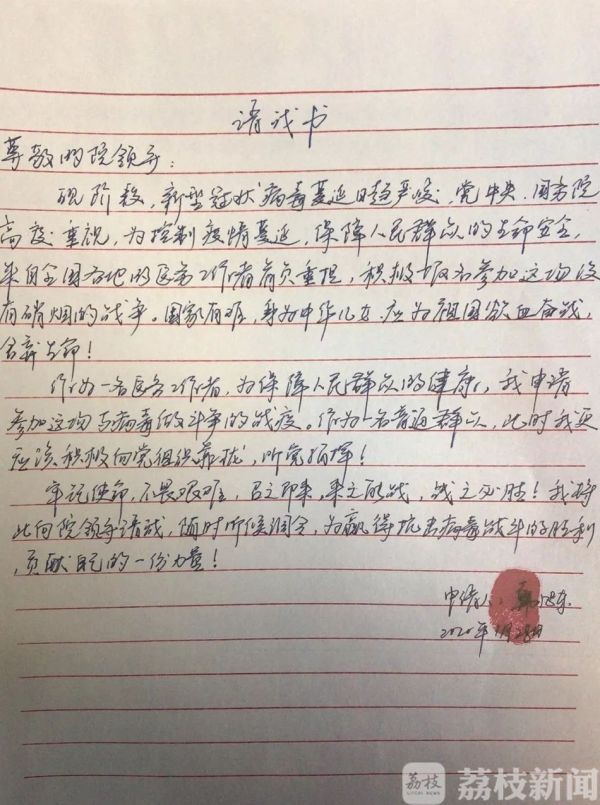 请战书
尊敬的院领导：
现阶段，新型冠状病毒蔓延日趋严峻，党中央、国务院
高度重视，为控制疫情蔓延，保障人民群众的生命安全，
来自全国各地的医务工作者肩负重担，积极报名参加这场没
有硝烟的战争。国家有难，身为中华儿女，应为祖国欲血奋战，
舍新生命！
作为一名医务工作者，为保障人民群众的健康，我申请
参加这场与病毒做斗争的战疫，作为一名普通群众，此时我更
应该积极向党组织靠拢，听党指挥！
牢记使命，不畏艰难，召之即来，来之能战，战之必胜！我将
此向院领导请战，随时听候调令，为赢得抗击病毒战斗的胜利
，贡献自己的一份力量！
申请人：
2020年1月28日
荔枝
LITCHI NEWS
荔枝新闻